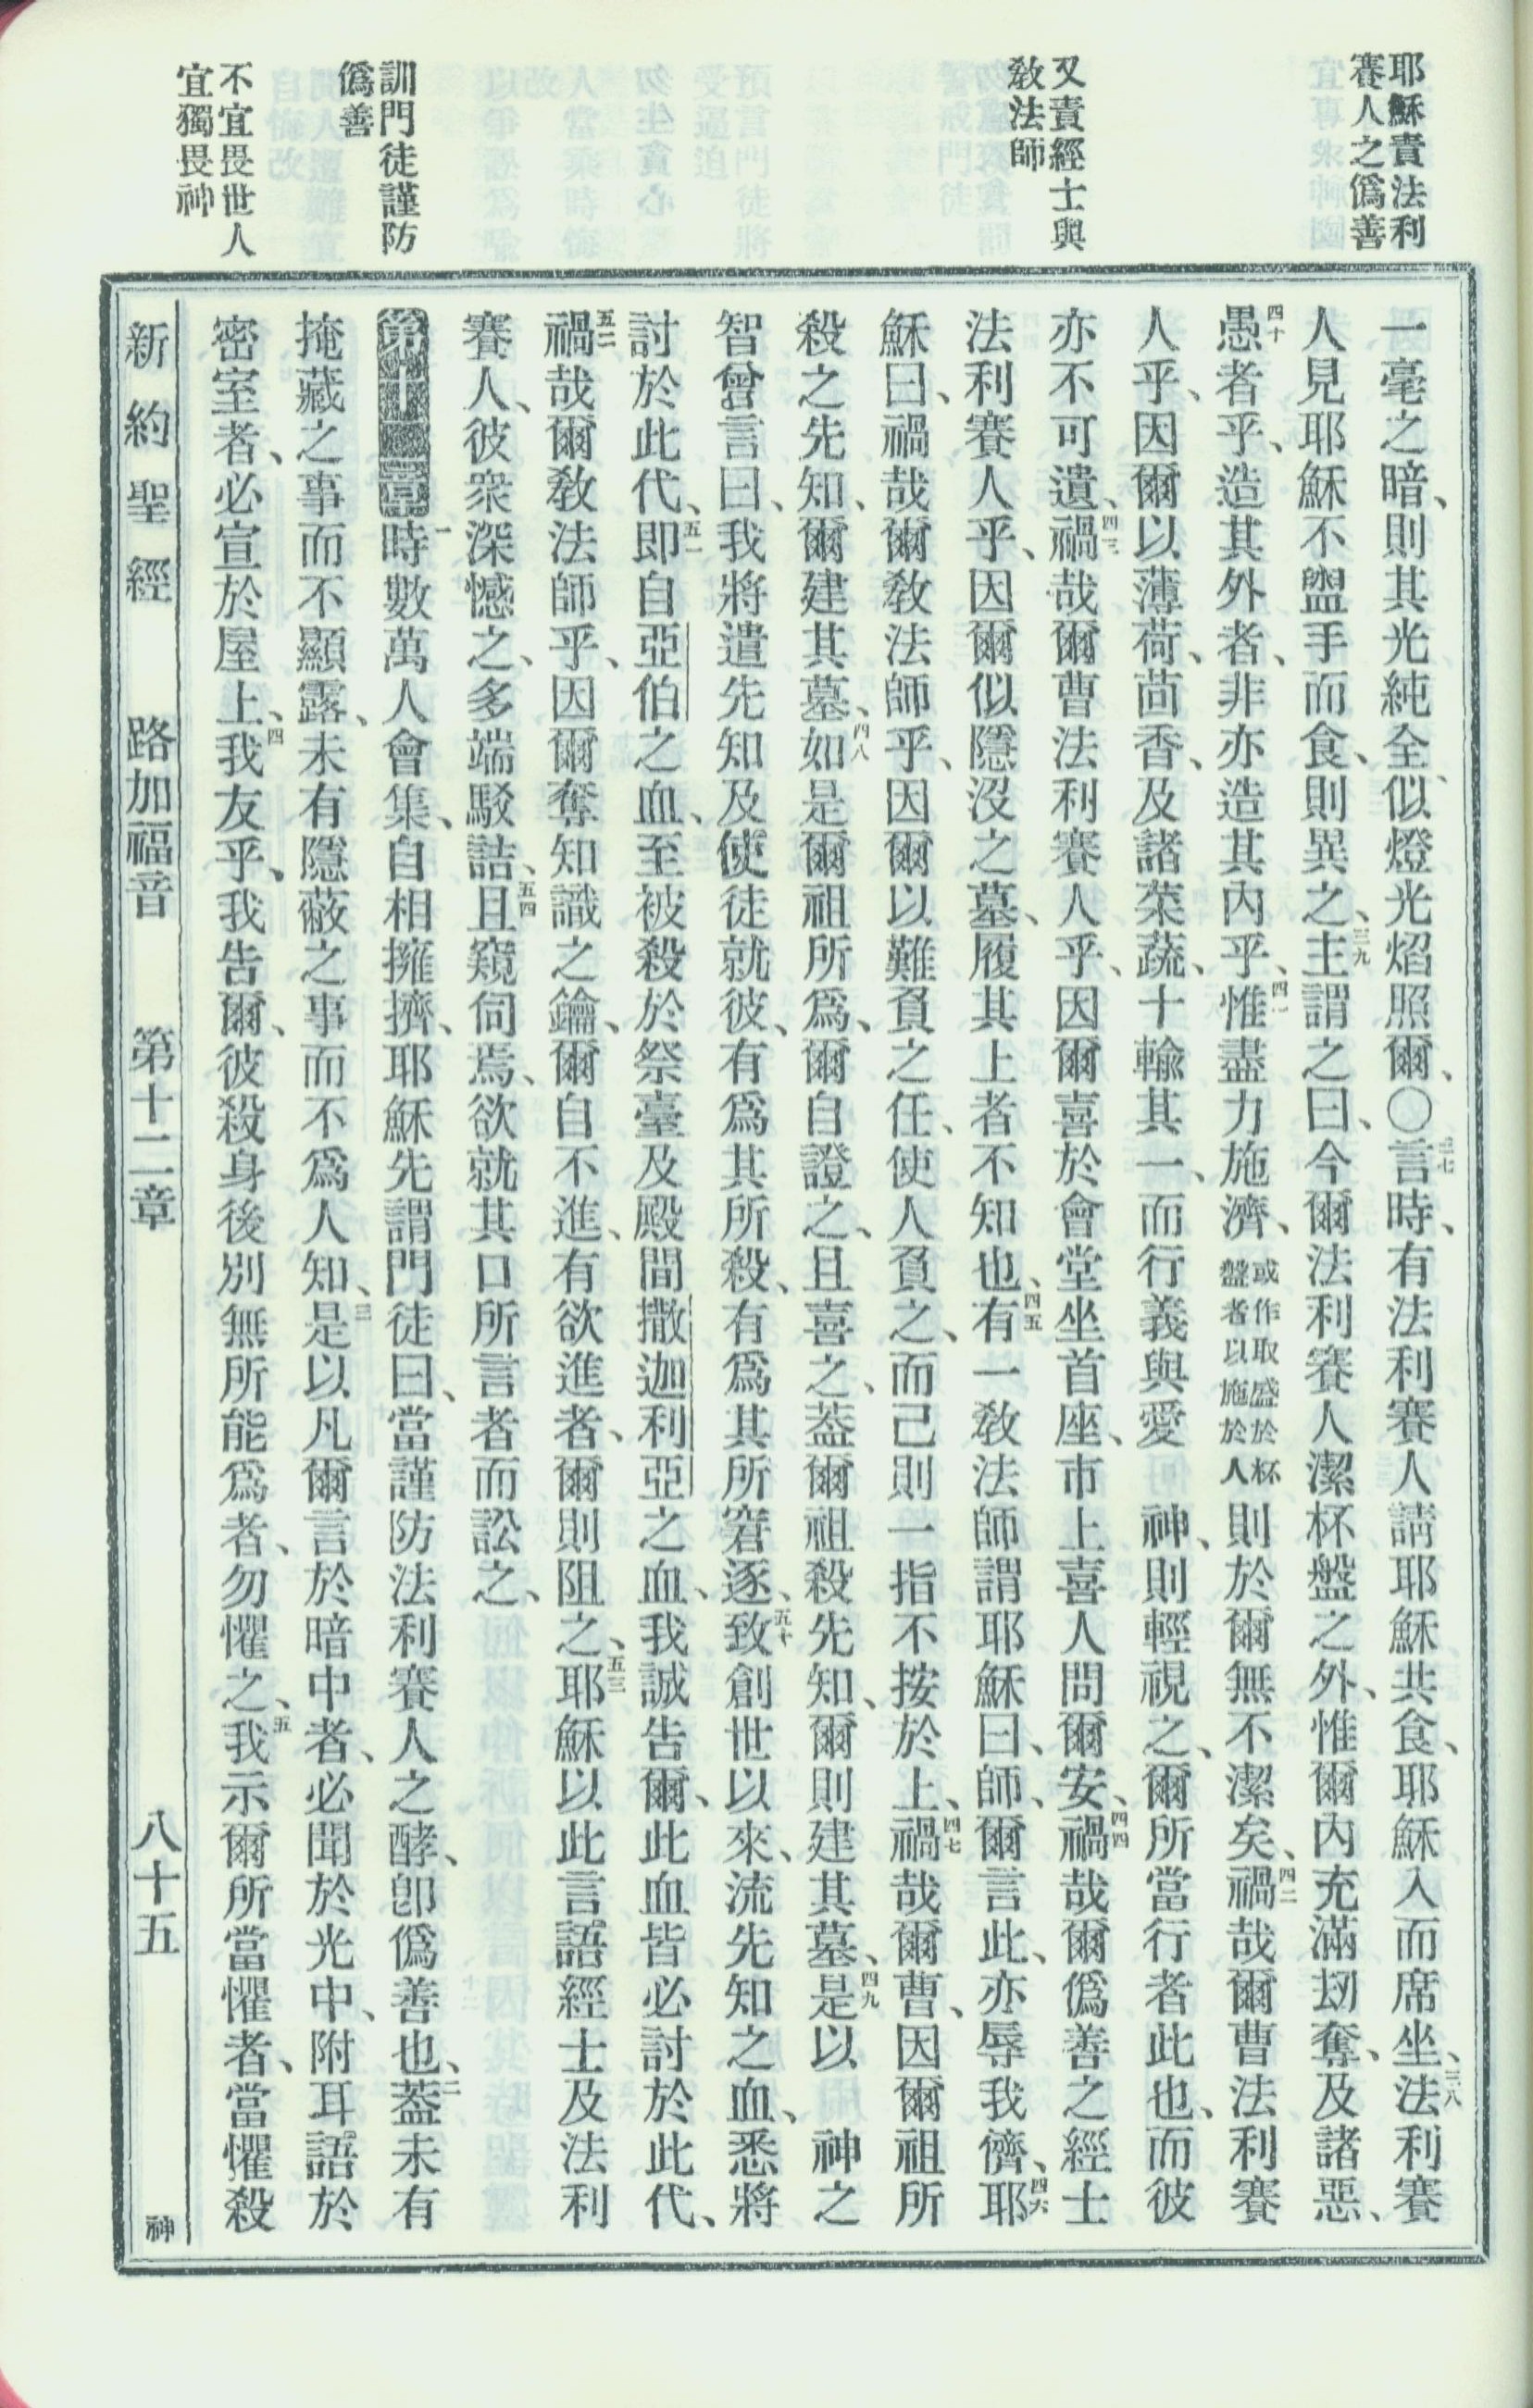 耶穌責法利
賽人之僞善
又責經士與
敎法師
訓門徒謹防
僞善
不宜畏世人
宜獨畏神
一毫之暗、則其光純全、似燈光焰照爾、〇三七言時、有法利賽人請耶穌共食、耶穌入而席坐、三八法利賽
人見耶穌不盥手而食、則異之、三九主謂之曰、今爾法利賽人潔杯盤之外、惟爾內充滿刧奪、及諸惡、
四十愚者乎、造其外者、非亦造其內乎、四一惟盡力施濟、或作取盛於杯盤者以施於人則於爾無不潔矣、四二禍哉爾曹法利賽
人乎、因爾以薄荷、茴香、及諸菜蔬、十輸其一、而行義與愛 神、則輕視之、爾所當行者此也、而彼
亦不可遺、四三禍哉爾曹法利賽人乎、因爾喜於會堂坐首座、市上喜人問爾安、四四禍哉爾僞善之經士
法利賽人乎、因爾似隱沒之墓、履其上者不知也、四五有一敎法師謂耶穌曰、師、爾言此、亦辱我儕、四六耶
穌曰、禍哉爾敎法師乎、因爾以難負之任、使人負之、而己則一指不按於上、四七禍哉爾曹、因爾祖所
殺之先知、爾建其墓、四八如是爾祖所爲、爾自證之、且喜之、蓋爾祖殺先知、爾則建其墓、四九是以 神之
智曾言曰、我將遣先知及使徒就彼、有爲其所殺、有爲其所窘逐、五十致創世以來、流先知之血、悉將
討於此代、五一即自亞伯之血、至被殺於祭臺及殿間撒迦利亞之血、我誠告爾、此血皆必討於此代、
五二禍哉爾敎法師乎、因爾奪知識之鑰、爾自不進、有欲進者、爾則阻之、五三耶穌以此言語經士及法利
賽人、彼衆深憾之、多端駁詰、五四且窺伺焉、欲就其口所言者而訟之、
第十二章一時數萬人會集、自相擁擠、耶穌先謂門徒曰、當謹防法利賽人之酵、卽僞善也、二蓋未有
掩藏之事而不顯露、未有隱蔽之事而不爲人知、三是以凡爾言於暗中者、必聞於光中、附耳語於
密室者、必宣於屋上、四我友乎、我告爾、彼殺身後別無所能爲者、勿懼之、五我示爾所當懼者、當懼殺
新約聖經 路加福音 第十二章 八十五 神